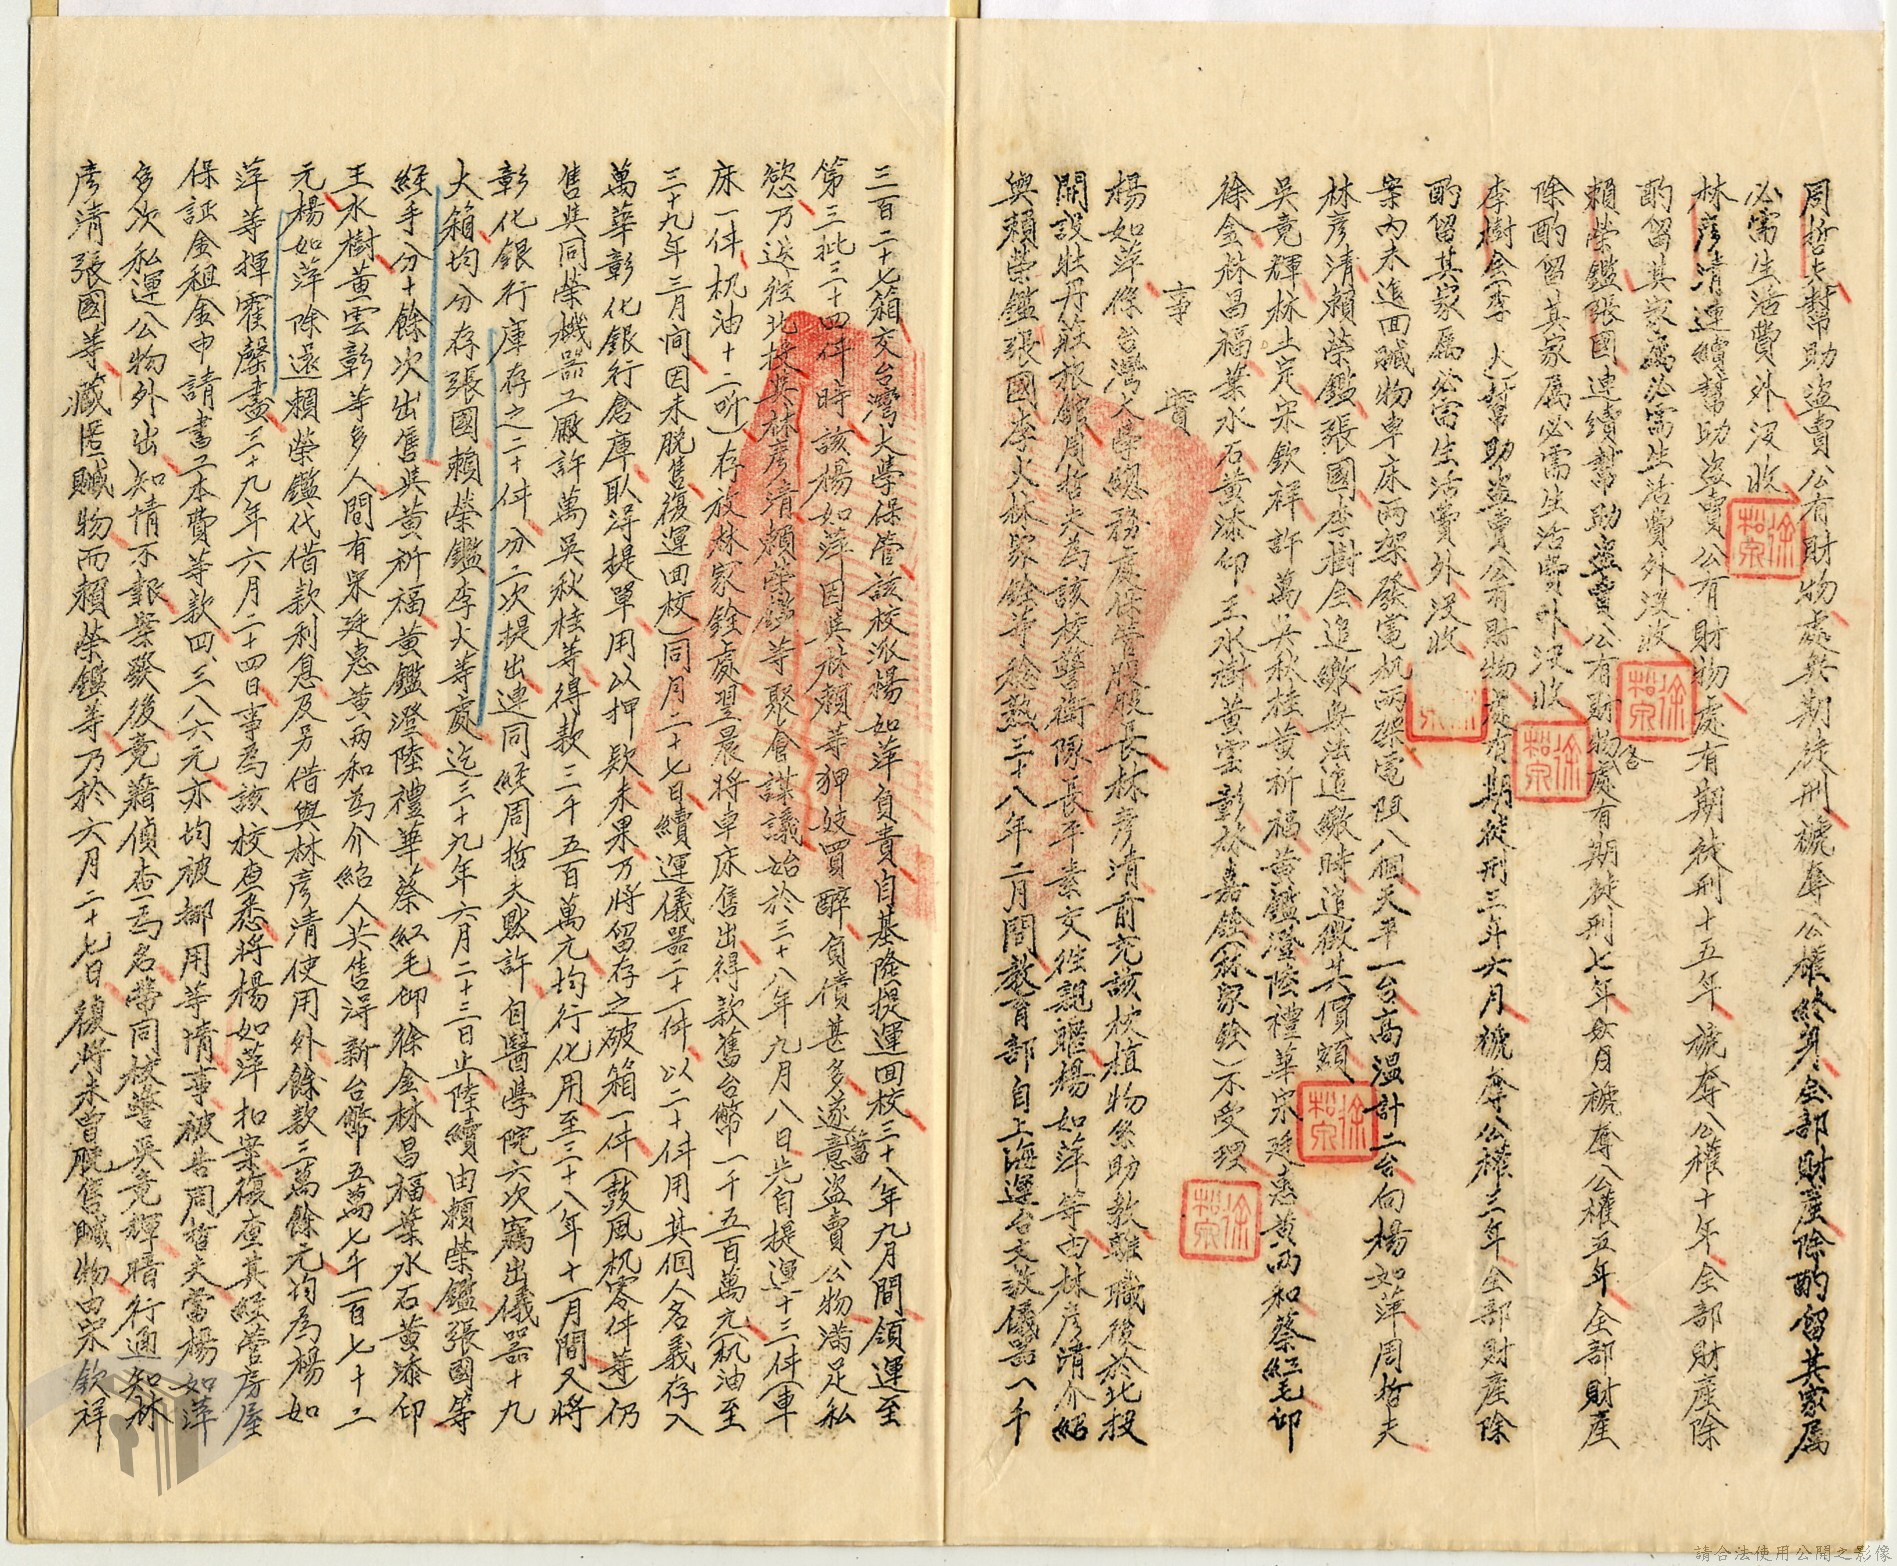 周哲夫幫助盗賣公有財物處無期徒刑褫奪公權終身全部財産除酌留其家属
必需生活費外没收
林彦清連續幫助盗賣公有財物處有期徒刑十五年褫奪公權十年全部財産除
酌留其家属必需生活費外没收
賴榮鑑張國連續幫助盗賣公有財物各處有期徒刑七年褫奪公權五年全部財産
除酌留其家属必需生活費外没收
李樹金李火幫助盗賣公有財物處有期徒刑三年六月褫奪公權三年全部財産除
酌留其家属必需生活費外没收
案内未追回贓物車床両架發電机両架電阻八個天平一台高溫計二台向楊如萍周哲夫
林彦清賴榮鑑張國李樹金追繳無法追繳時追徵其價額
吳竟輝林土定宋欽祥許萬吳秋桂黄祈福黄鑑澄陸禮華宗廷惠黄両和蔡紅毛卯
徐金林昌福葉水石黄漆卯王水樹黄雲彰林嘉銓(林家銓)不受理
事 實
楊如萍係台灣大學總務處保管股股長林彦清前充該校植物系助教離職後於北投
開設牡丹莊旅館周哲夫為該校警衛隊長平素交往親暱楊如萍等由林彦清介紹
與賴榮鑑張國李火林家銓等稔熟三十八年二月間教育部自上海運台文教儀器八千
三百二十七箱交台灣大學保管該校派楊如萍負責自基隆提運回校三十八年九月間領運至
第三批三十四件時該楊如萍因與林賴等狎妓買醉負債甚多遂蓄意盗賣公物満足私
慾乃送往北投與林彦清賴榮鑑等聚會謀議始於三十八年九月八日先自提運十三件(車
床一件机油十二听)存放林家銓處翌晨將車床售出得款舊台幣一千五百萬元(机油至
三十九年三月间因未脱售復運回校)同月二十七日續運儀器二十一件以二十件用其個人名義存入
萬華彰化銀行倉庫取得提單用以押欵未果乃將留存之破箱一件(鼓風机零件等)仍
售與同榮機器工廠許萬吳秋桂等得款三千五百萬元均行化用至三十八年十一月間又將
彰化銀行庫存之二十件分二次提出連同經周哲夫默許自醫學院六次竊出儀器十九
大箱均分存張國賴榮鑑李火等處迄三十九年六月二十三日止陸續由賴榮鑑張國等
經手分十餘次出售與黄祈福黄鑑澄陸禮華蔡紅毛卯徐金林昌福葉水石黄漆卯
王水樹黄雲彰等多人間有宋廷惠黄両和為介紹人共售得新台幣五萬七千一百七十二
元楊如萍除還賴榮鑑代借款利息及另借與林彦清使用外餘款三萬餘元均為楊如
萍等揮霍罄盡三十九年六月二十四日事為該校查悉將楊如萍扣案複查其經營房屋
保証金租金申請書工本費等款四、三八六元亦均被挪用等情事被告周哲夫當楊如萍
多次私運公物外出知情不報案發後竟藉偵查為名帶同校警吳竟輝暗行通知林
彦清張國等藏匿贓物而賴榮鑑等乃於六月二十七日復將未曾脱售贓物由宋欽祥
請合法使用公開之影像